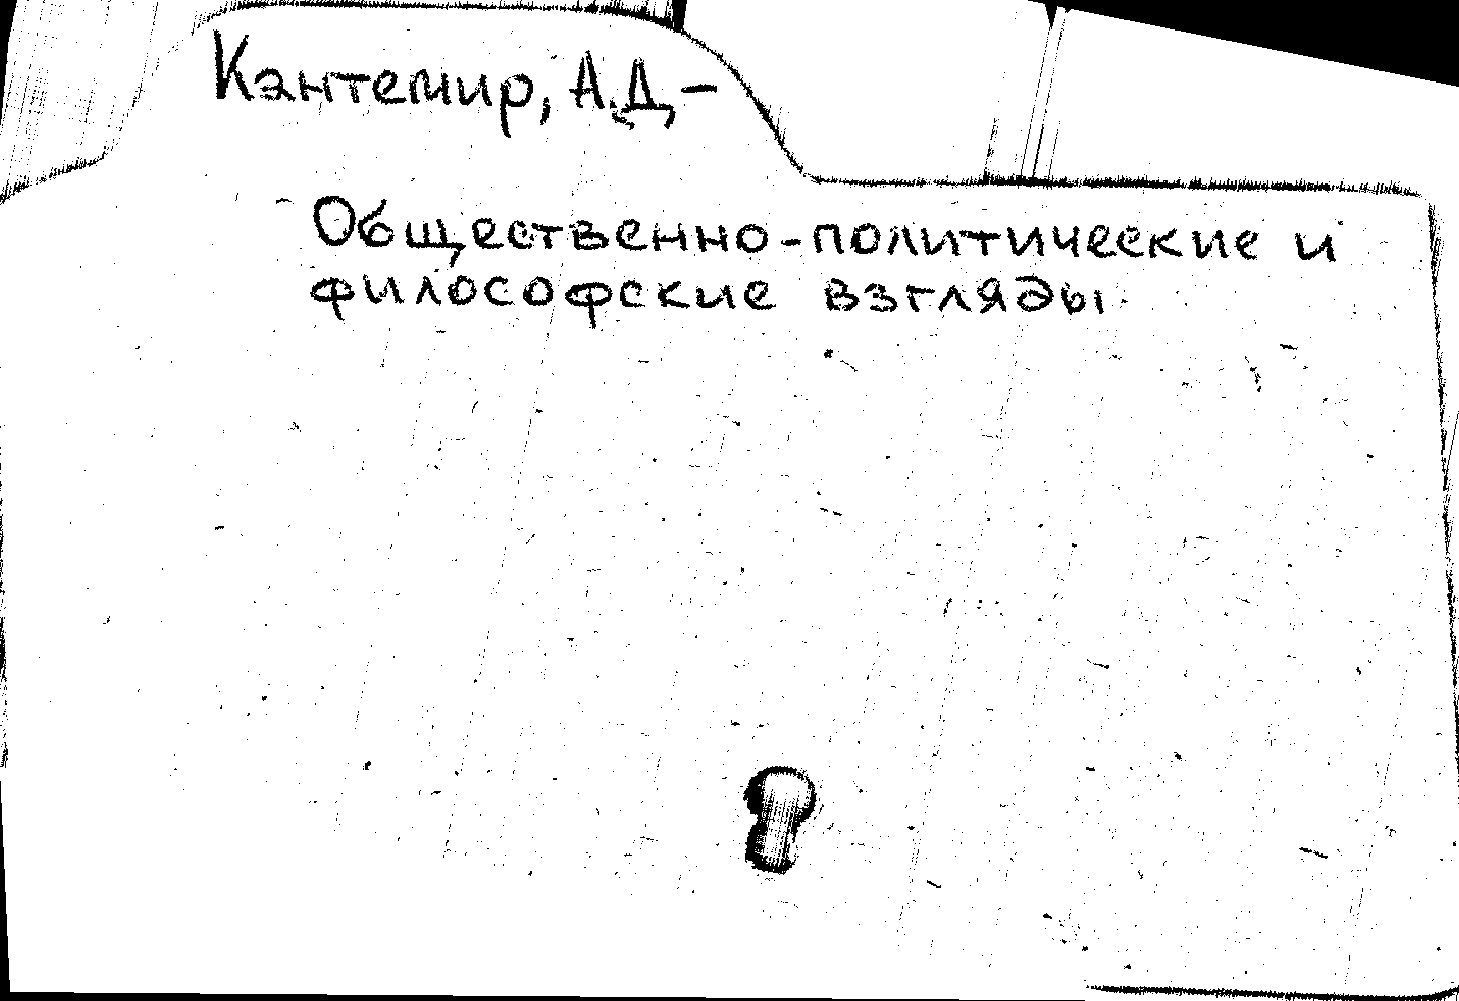 Кантемир, А.Д. –
Общественно-политические и
философские взгляды